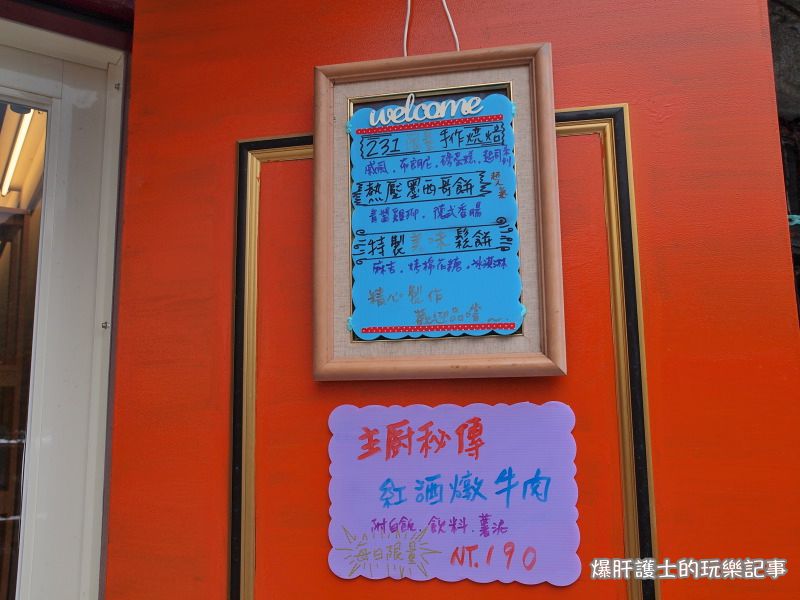 welcome
231 手作燒焙
戚風．布朗尼．磅蛋糕．起司系列
熱壓墨西哥餅 超人氣
青醬雞柳．德式香腸
特製美味鬆餅
麻吉．烤棉花糖．冰淇淋
精心製作
歡迎品嚐
主廚秘傳
紅酒燉牛肉
附白飯．飲料．薯泥
每日限量 NT.190
爆肝護士的玩樂記事